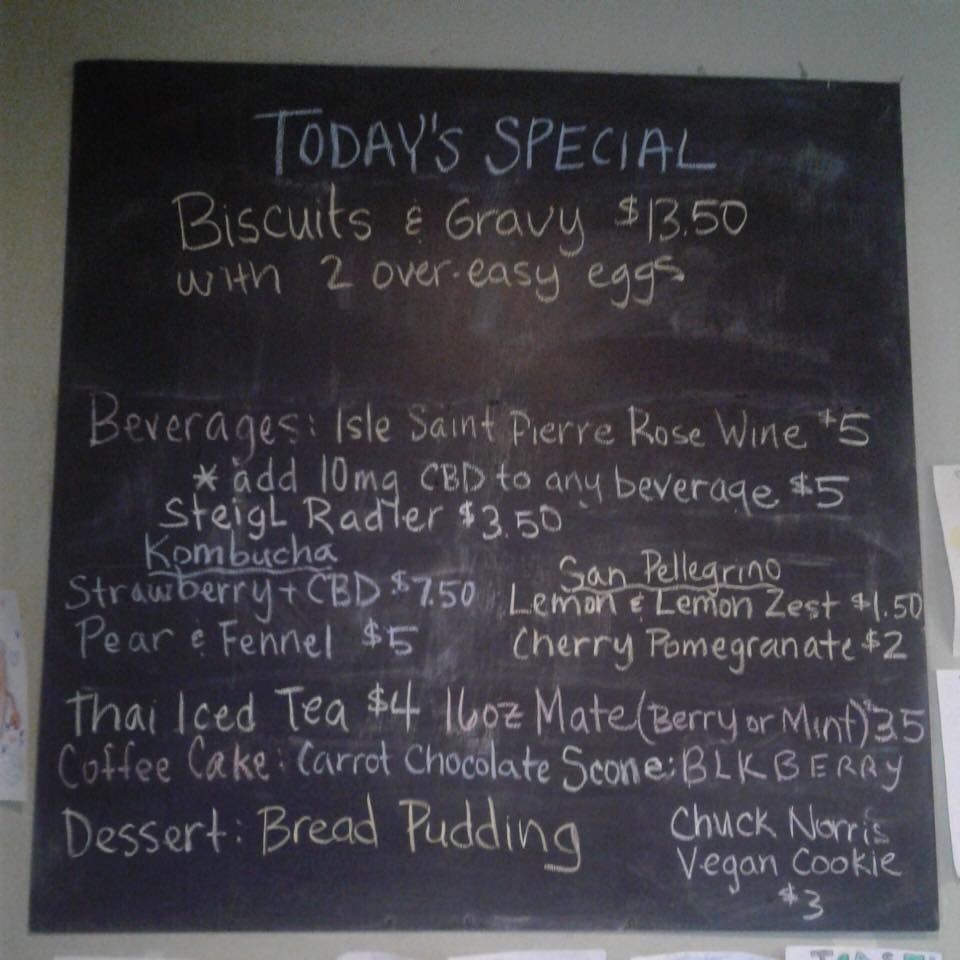 TODAY'S SPECIAL
Biscuits & Gravy $13.50
with 2 over-easy eggs
Beverages: Isle Saint Pierre Rose Wine $5
* add 10mg CBD to any beverage $5
Steigl Radler $3.50
Kombucha
Strawberry + CBD $7.50
Pear & Fennel $5
San Pellegrino
Lemon & Lemon Zest $1.50
Cherry Pomegranate $2
Thai Iced Tea $4 16oz Mate (Berry or Mint) $3.5
Coffee Cake: Carrot Chocolate Scone: BLKBERRY
Dessert: Bread Pudding
Chuck Norris
Vegan Cookie
$3